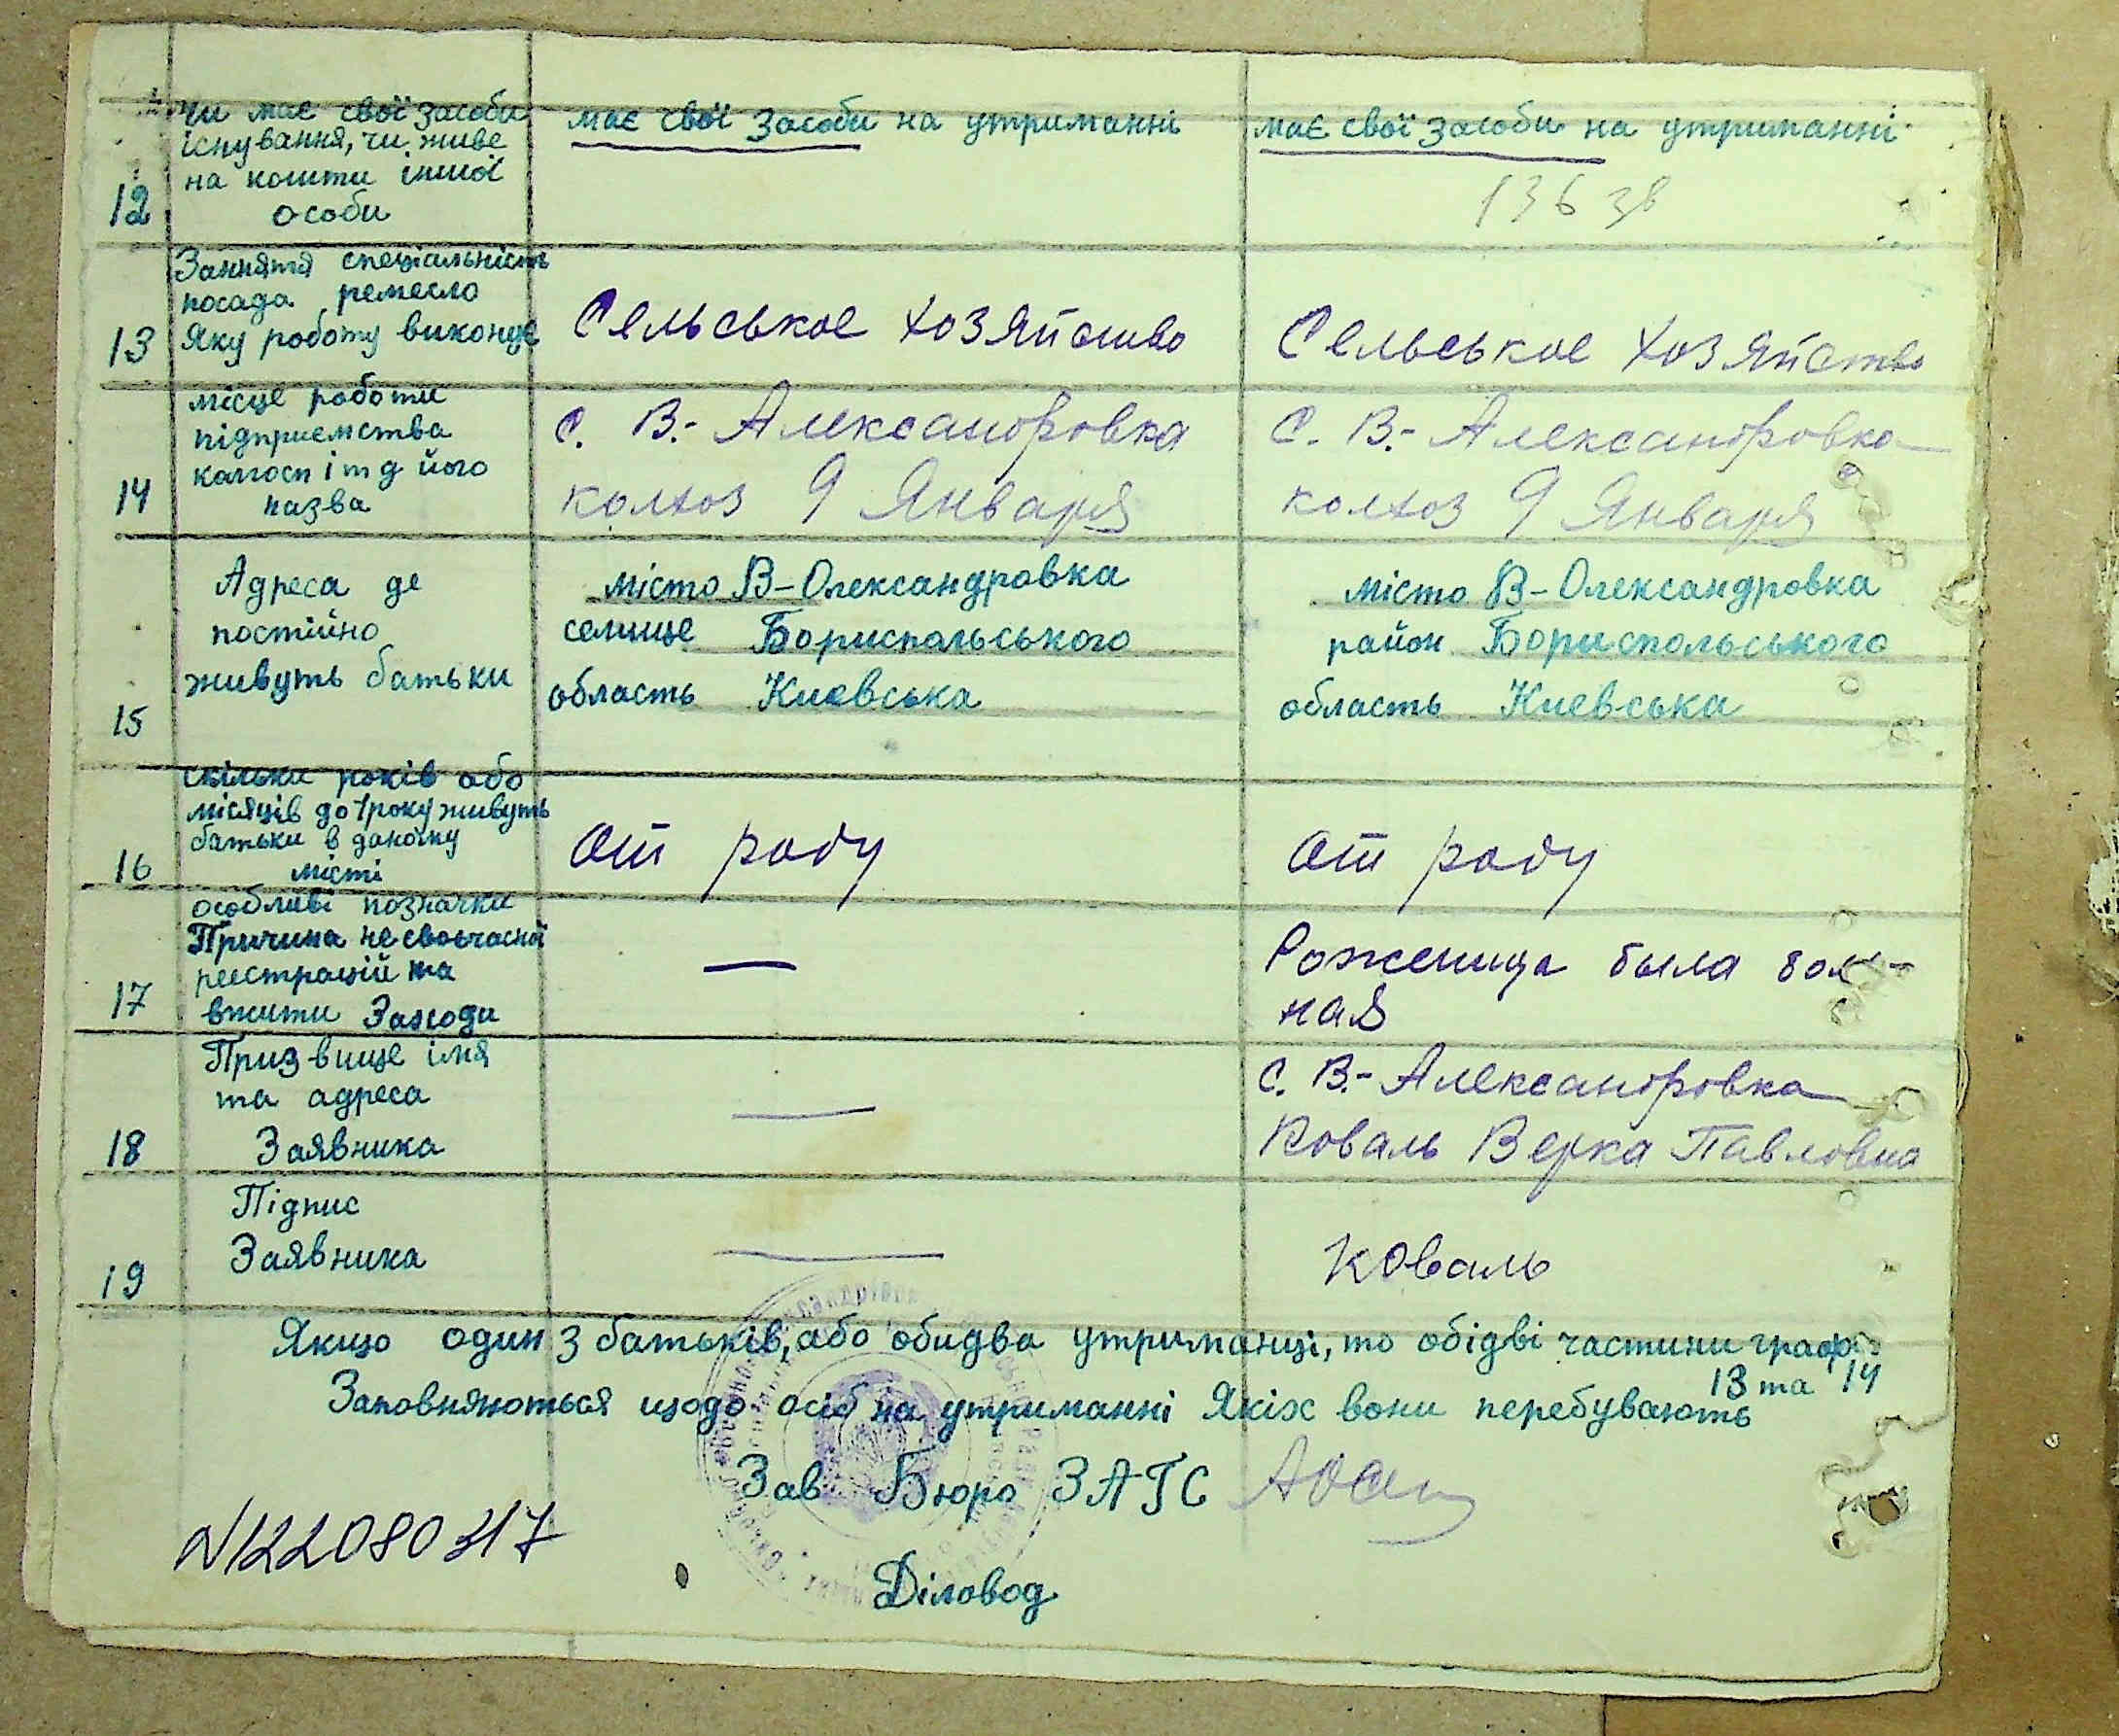 чи має свої засоби
існування, чи живе
на кошти іншої
12 особи
має свої засоби на утриманні
має свої засоби на утриманні
136 зв
Занняття спеціальність
посада ремесло
13 Яку роботу виконує
Сельськое хозяйство
Сельськое хозяйство
місце роботи
підприємства
колгосп і т д його
14 назва
с. В.- Александровка
колхоз 9 Января
с. В.- Александровка
колхоз 9 Января
Адреса де
постійно
живуть батьки
15
місто В-Олександровка
селище Бориспольського
область Киевська
місто В-Олександровка
район Бориспольського
область Киевська
скільки років або
місяців до 1 року живуть
батьки в даному
16 місті
От роду
От роду
особливі позначки
Причина несвоьчасної
реєстрацій та
17 вжити Заходи
—
Роженица была боль-
ная
Призвище імя
та адреса
18 Заявника
—
с. В.- Александровка
Коваль Верка Павловна
Підпис
Заявника
19
—
Коваль
Якщо один з батьків, або обидва утриманці, то обідві частини граф
13 та 14
Заповняються щодо осіб на утриманні Якіх вони перебувають
Зав Бюро ЗАГС
N122080317
Діловод